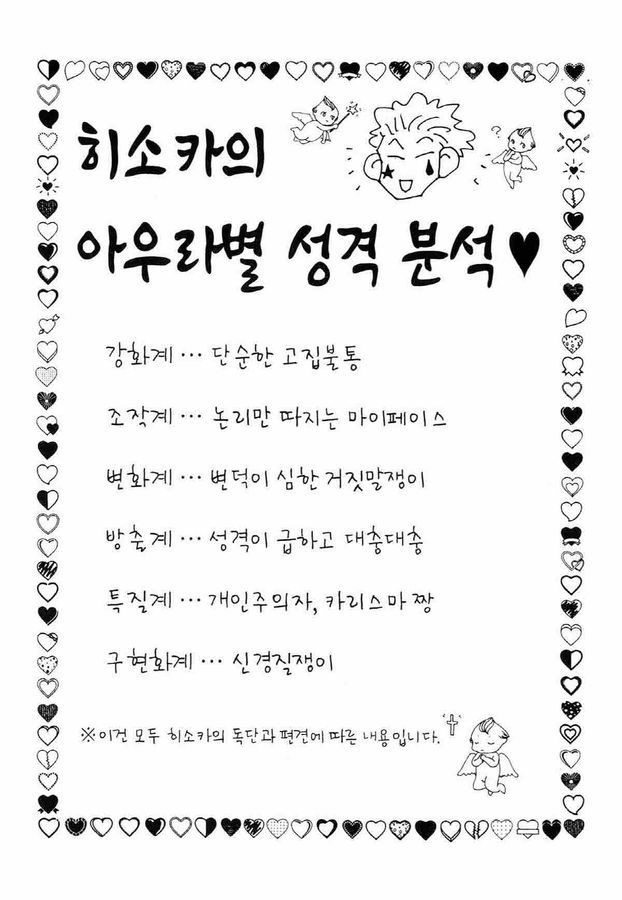 히소카의
아우라별 성격 분석♥
강화계 … 단순한 고집불통
조작계 … 논리만 따지는 마이페이스
변화계 … 변덕이 심한 거짓말쟁이
방출계 … 성격이 급하고 대충대충
특질계 … 개인주의자, 카리스마 짱
구현화계 … 신경질쟁이
※이건 모두 히소카의 독단과 편견에 따른 내용입니다.